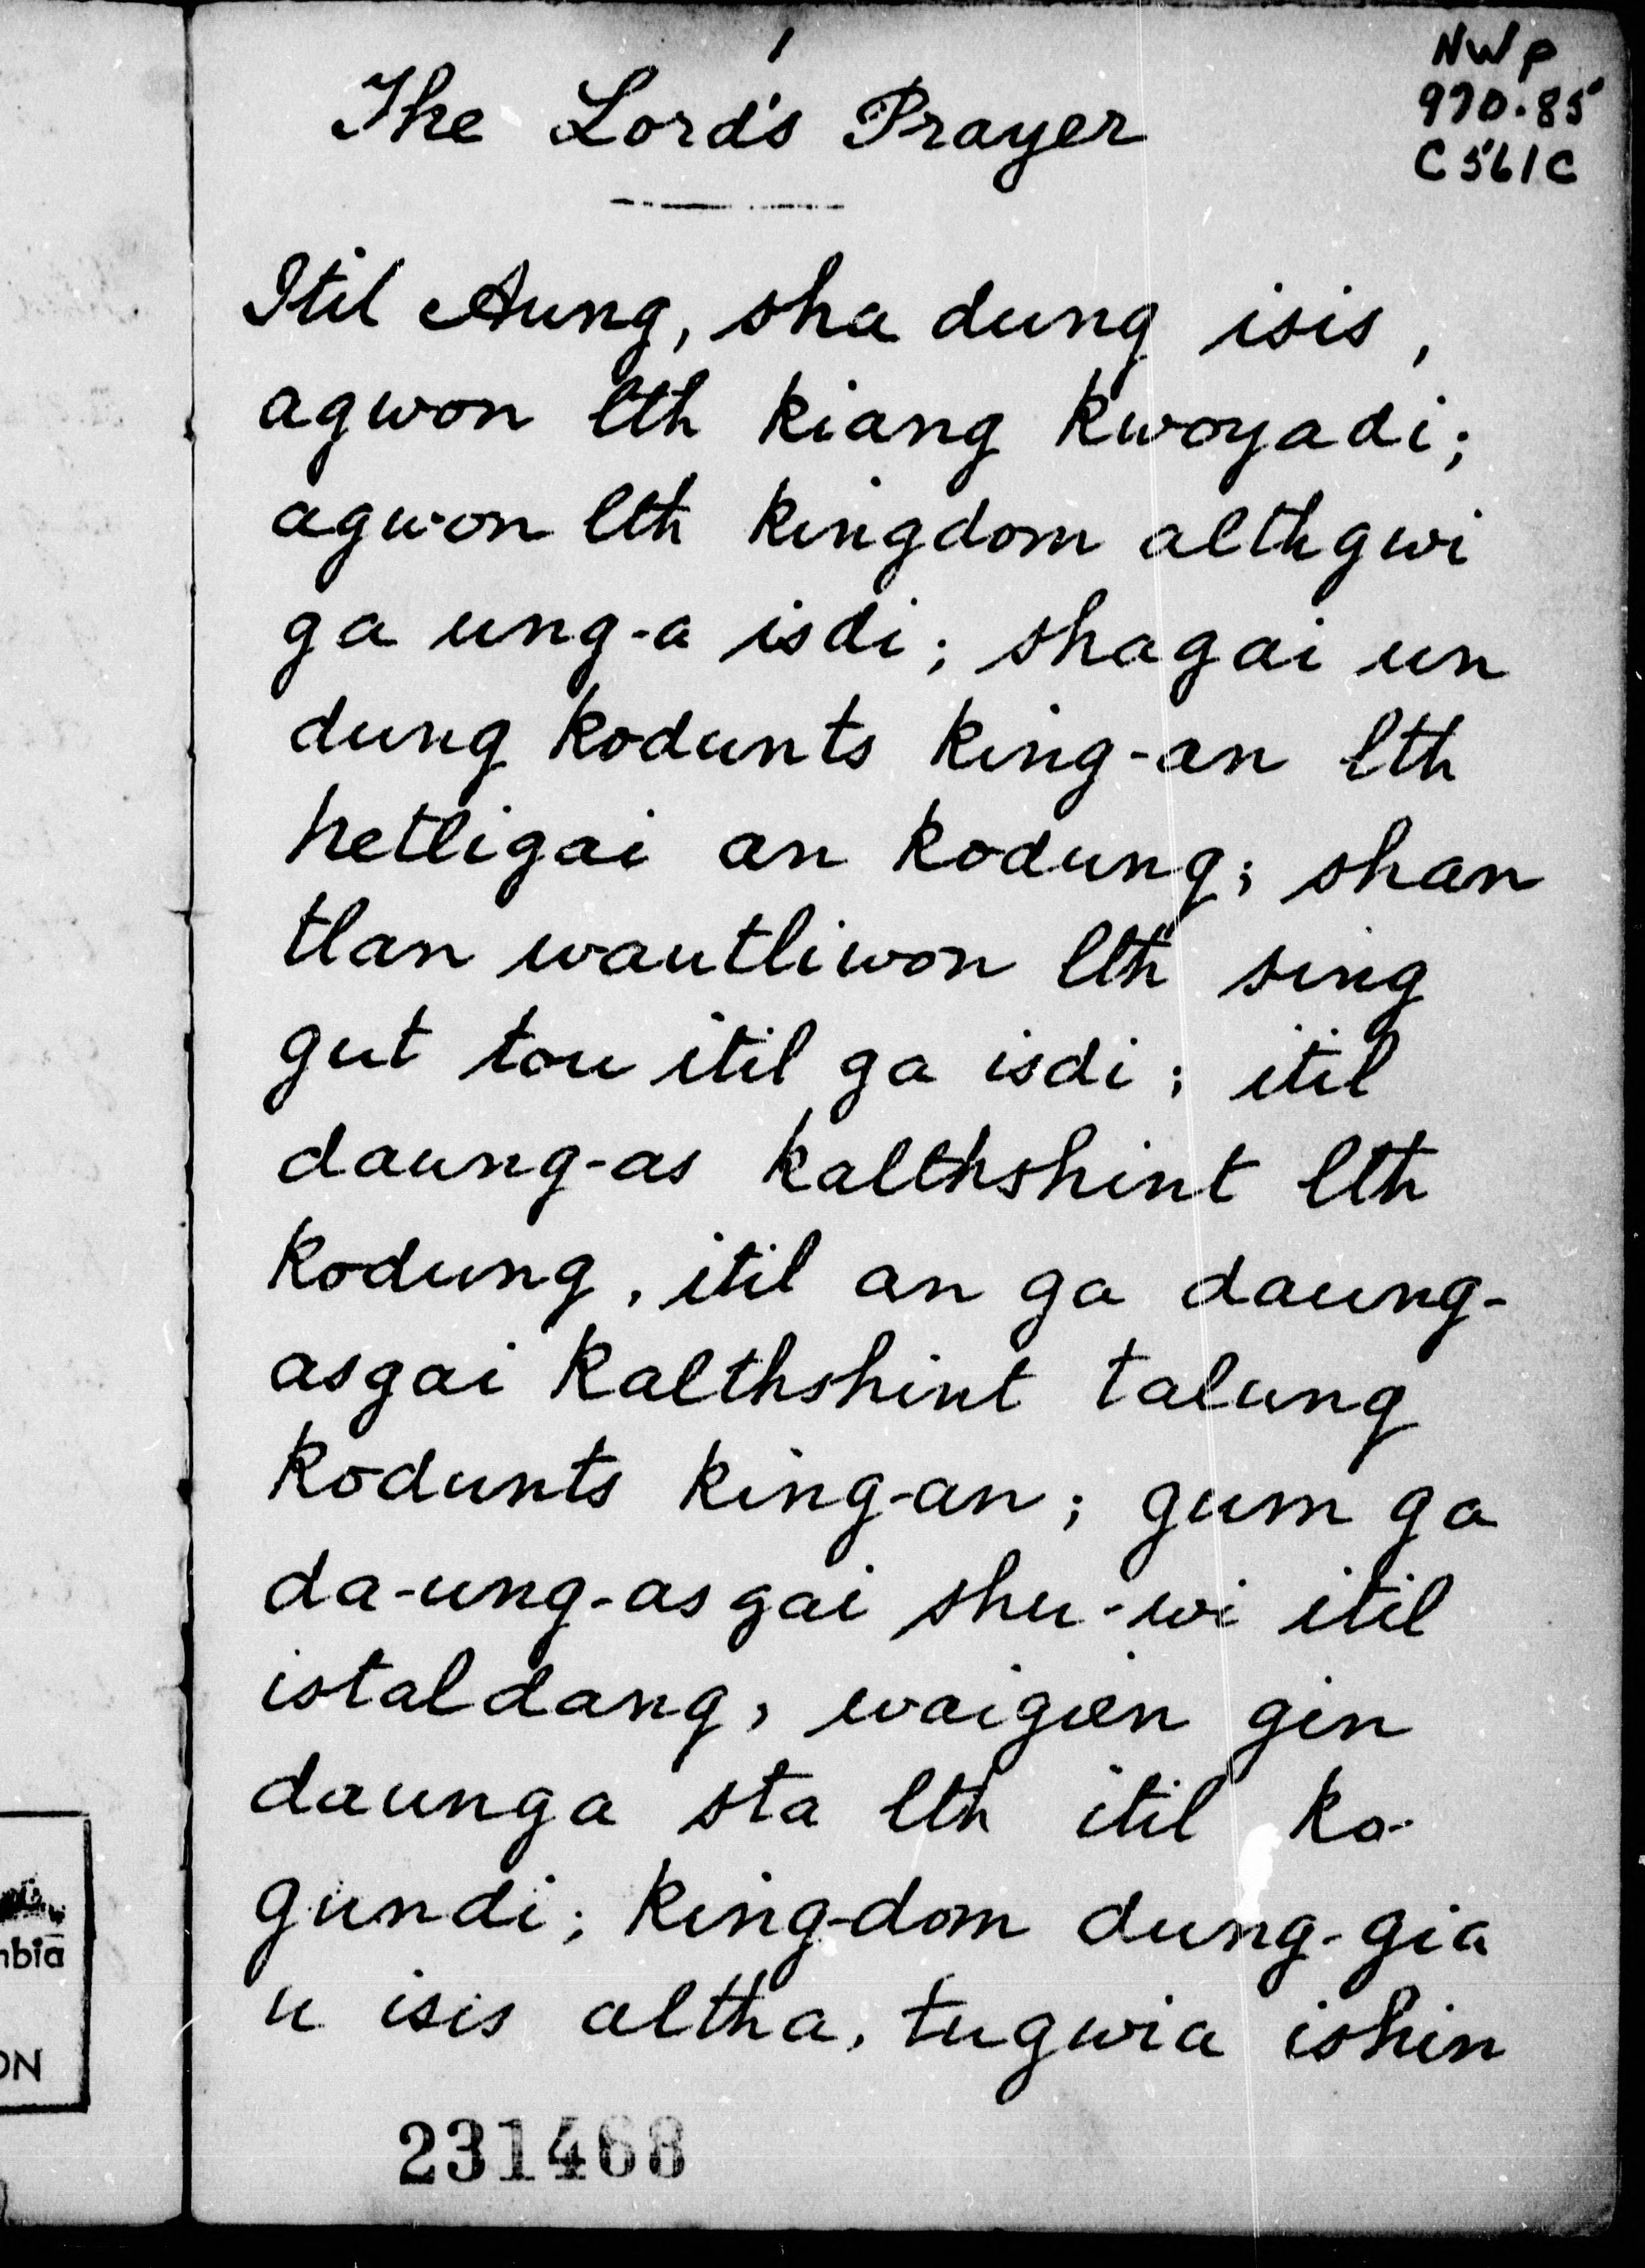 1
NWp
970.85
C561C
The Lord's Prayer
Itil Aung, sha dung isis,
agwon lth kiang kwoyadi;
agwon lth kingdom althgwi
ga ung-a isdi; shagai un
dung kodunts king-an lth
hetligai an kodung; shan
tlan wautliwon lth sing
gut tou itil ga isdi; itil
daung-as kalthshint lth
kodung, itil an ga daung-
asgai kalthshint talung
kodunts king-an; gum ga
da-ung-asgai shu-wi itil
istaldang, waigien gin
daunga sta lth itil ka-
gundi; king-dom dung-gia
u isis altha, tugwia ishin
231468
nbia
ON